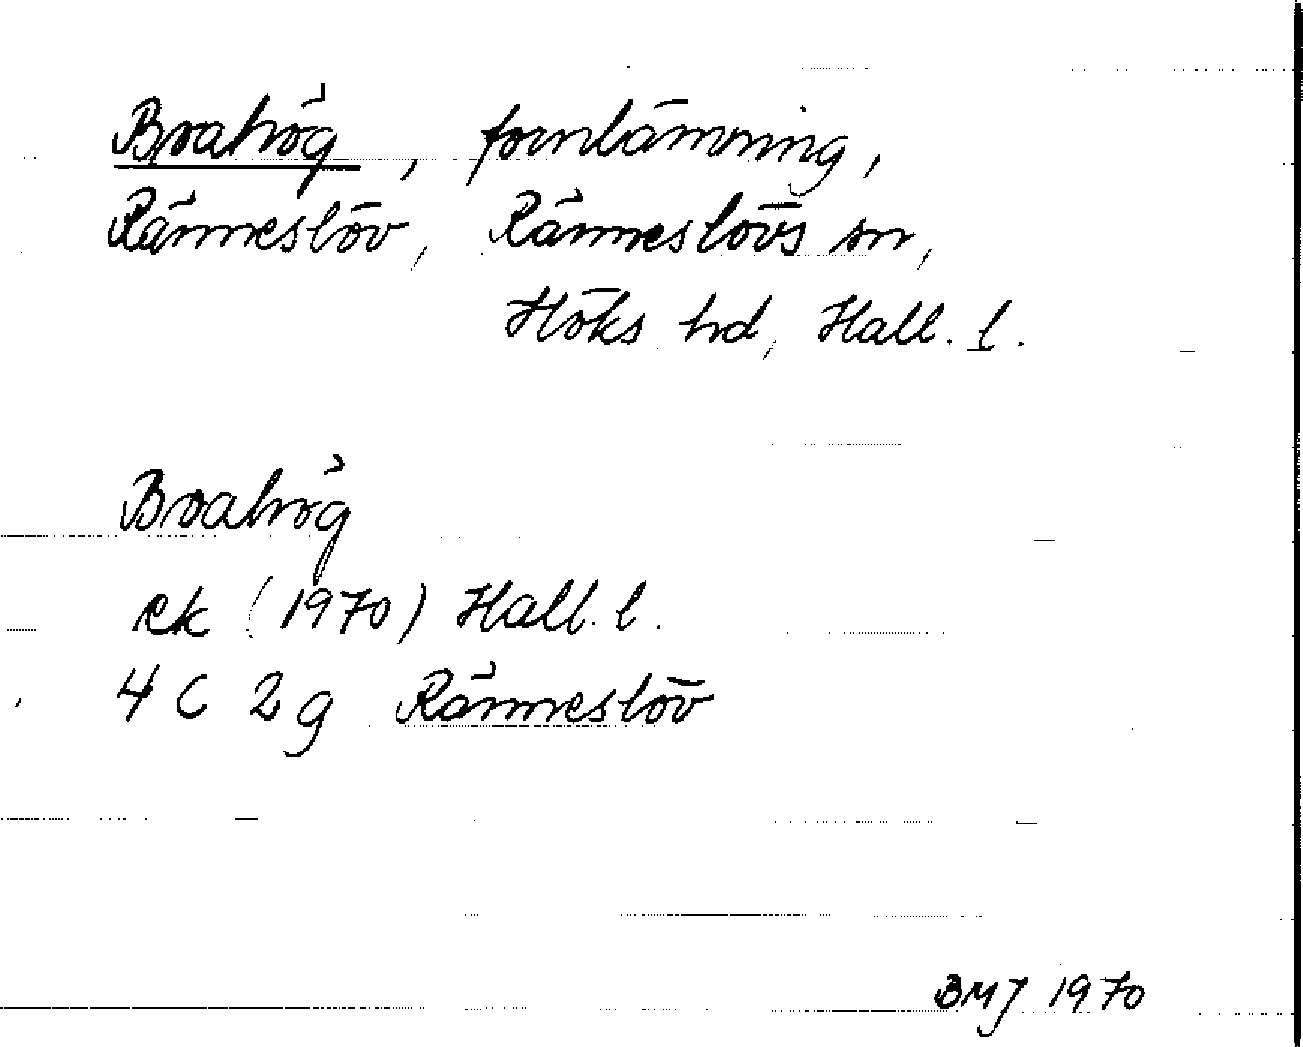 Brahög, fornlämning,
Ränneslöv, Ränneslövs sn,
Höks hd, Hall. l.
Brahög
ek (1970) Hall. l.
4 C 2 g Ränneslöv
BMJ 1970